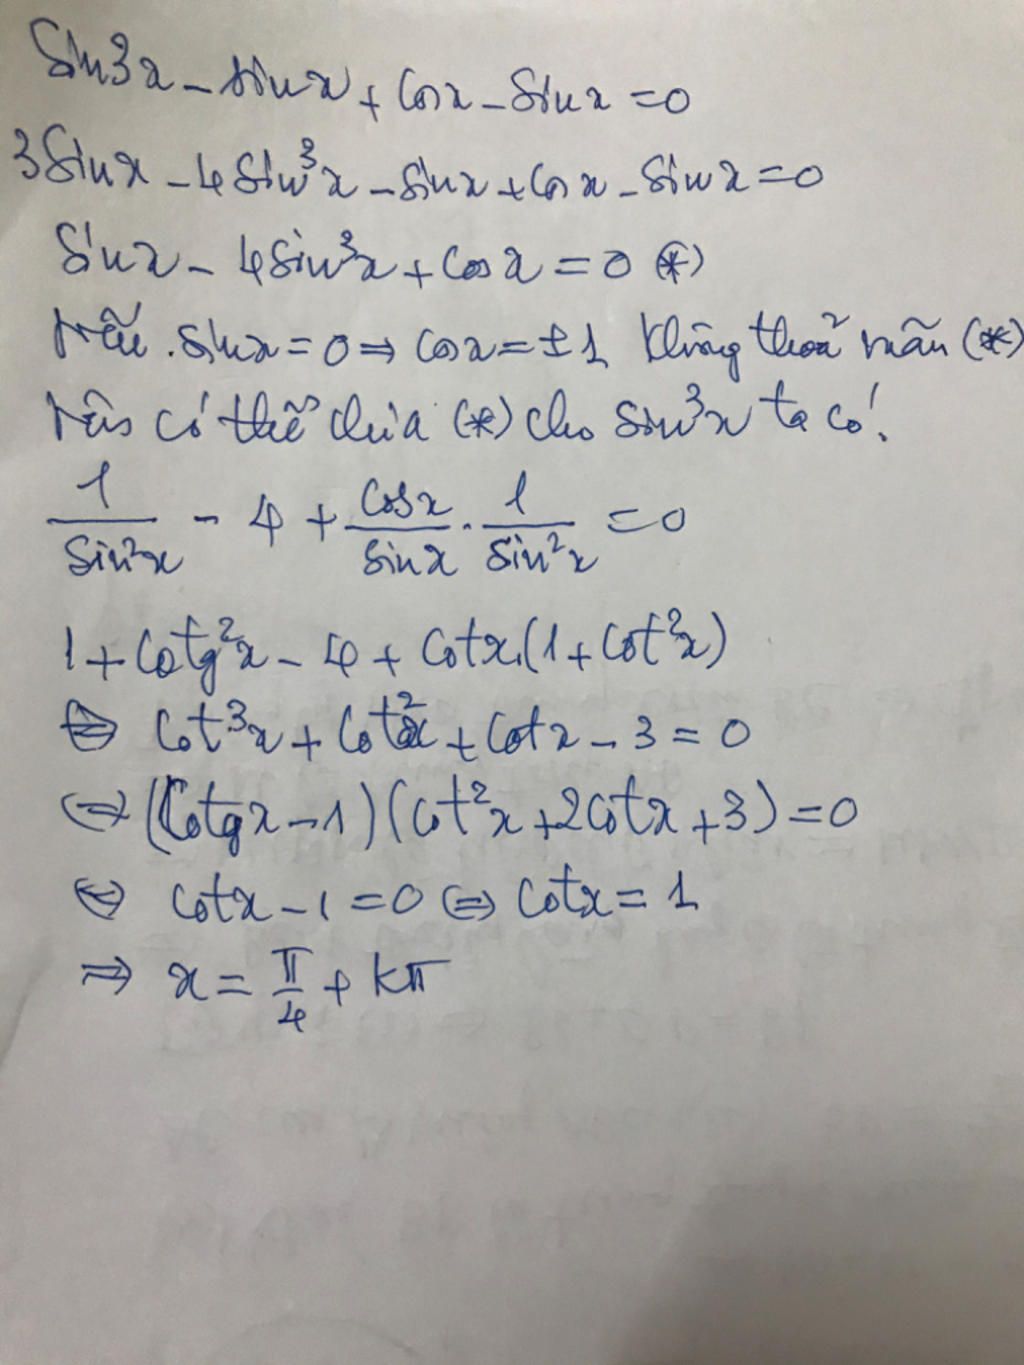 Sin3x - sinx + Cosx - Sinx = 0
3Sinx - 4Sin³x - sinx + cosx - sinx = 0
Sinx - 4Sin³x + Cosx = 0 (*)
Nếu sinx = 0 ⇒ cosx = ±1 không thoả mãn (*)
Nên có thể chia (*) cho Sin³x ta có:
1/Sin²x - 4 + Cosx/sinx . 1/Sin²x = 0
1 + Cotg²x - 4 + Cotx.(1 + Cot²x)
⇔ Cot³x + Cot²x + Cotx - 3 = 0
⇔ (Cotgx - 1)(Cot²x + 2Cotx + 3) = 0
⇔ Cotx - 1 = 0 ⇔ Cotx = 1
⇒ x = π/4 + kπ